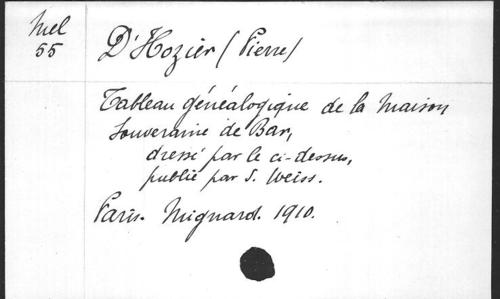 Mel
55
D'Hozier (Pierre)
Tableau généalogique de la Maison
Souveraine de Bar,
dressé par le ci-dessus,
publié par J. Weiss.
Paris. Mignard. 1910.